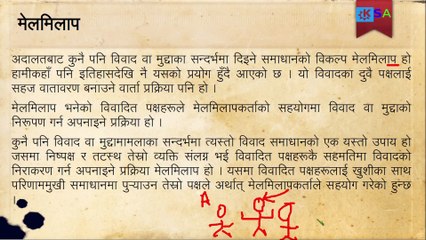 KSA
मेलमिलाप
अदालतबाट कुनै पनि विवाद वा मुद्दाका सन्दर्भमा दिइने समाधानको विकल्प मेलमिलाप हो
हामीकहाँ पनि इतिहासदेखि नै यसको प्रयोग हुँदै आएको छ । यो विवादका दुवै पक्षलाई
सहज वातावरण बनाउने वार्ता प्रक्रिया पनि हो ।
मेलमिलाप भनेको विवादित पक्षहरूले मेलमिलापकर्ताको सहयोगमा विवाद वा मुद्दाको
निरूपण गर्न अपनाइने प्रक्रिया हो ।
कुनै पनि विवाद वा मुद्दामामलाका सन्दर्भमा त्यस्तो विवाद समाधानको एक यस्तो उपाय हो
जसमा निष्पक्ष र तटस्थ तेस्रो व्यक्ति संलग्न भई विवादित पक्षहरूकै सहमतिमा विवादको
निराकरण गर्न अपनाइने प्रक्रिया मेलमिलाप हो । यसमा विवादित पक्षहरूलाई खुशीका साथ
परिणाममुखी समाधानमा पुऱ्याउन तेस्रो पक्षले अर्थात् मेलमिलापकर्ताले सहयोग गरेको हुन्छ
।
A